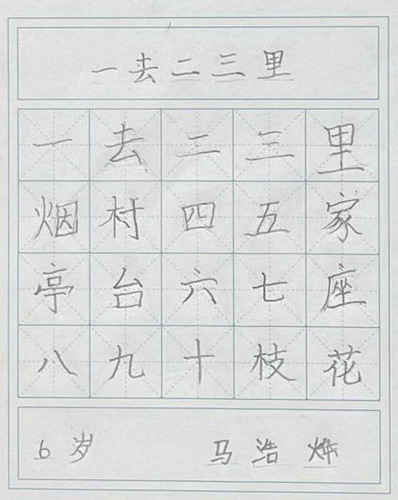 一去二三里
一去二三里
烟村四五家
亭台六七座
八九十枝花
6岁 马浩烨